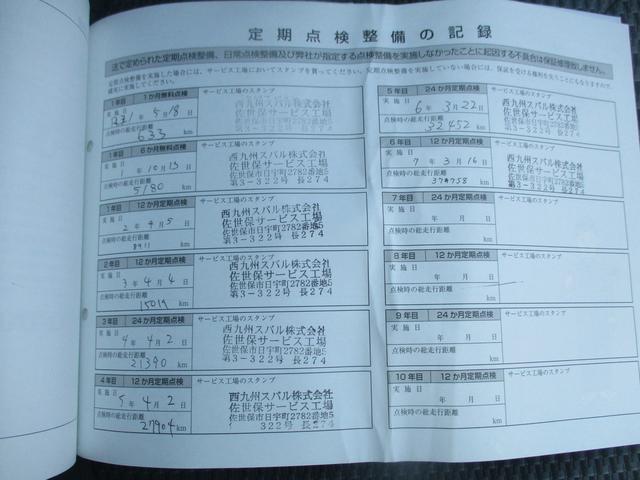 定期点検整備の記録
法で定められた定期点検整備、日常点検整備及び弊社が指定する点検整備を実施しなかったことに起因する不具合は保証修理致しません。
定期点検整備を実施した場合には、サービス工場においてスタンプを貰ってください。定期点検整備を実施していない場合には、保証を受ける権利を失うことにもなりますので、
確実に実施してください。
1年目 1か月無料点検
サービス工場のスタンプ
実施日
5月18日
点検時の総走行距離
633 km
西九州スバル株式会社
佐世保サービス工場
佐世保市日宇町2782番地5
第3-322号 長274
1年目 6か月無料点検
サービス工場のスタンプ
実施日
1年10月13日
点検時の総走行距離
5180 km
西九州スバル株式会社
佐世保サービス工場
佐世保市日宇町2782番地5
第3-322号 長274
1年目 12か月定期点検
サービス工場のスタンプ
実施日
2年4月5日
点検時の総走行距離
8911 km
西九州スバル株式会社
佐世保サービス工場
佐世保市日宇町2782番地5
第3-322号 長274
2年目 12か月定期点検
サービス工場のスタンプ
実施日
3年4月4日
点検時の総走行距離
km
西九州スバル株式会社
佐世保サービス工場
佐世保市日宇町2782番地5
第3-322号 長274
3年目 24か月定期点検
サービス工場のスタンプ
実施日
4年4月2日
点検時の総走行距離
21390 km
西九州スバル株式会社
佐世保サービス工場
佐世保市日宇町2782番地5
第3-322号 長274
4年目 12か月定期点検
サービス工場のスタンプ
実施日
5年4月2日
点検時の総走行距離
27904 km
西九州スバル株式会社
佐世保サービス工場
佐世保市日宇町2782番地5
322号 長274
5年目 24か月定期点検
サービス工場のスタンプ
実施日
6年3月22日
点検時の総走行距離
32452 km
西九州スバル株式会社
佐世保サービス工場
佐世保市日宇町2782番地5
第3-322号 長274
6年目 12か月定期点検
サービス工場のスタンプ
実施日
7年3月16日
点検時の総走行距離
37758 km
西九州スバル株式会社
佐世保サービス工場
佐世保市日宇町2782番地5
第3-322号 長274
7年目 24か月定期点検
サービス工場のスタンプ
実施日
年 月 日
点検時の総走行距離
km
8年目 12か月定期点検
サービス工場のスタンプ
実施日
年 月 日
点検時の総走行距離
km
9年目 24か月定期点検
サービス工場のスタンプ
実施日
年 月 日
点検時の総走行距離
km
10年目 12か月定期点検
サービス工場のスタンプ
実施日
年 月 日
点検時の総走行距離
km